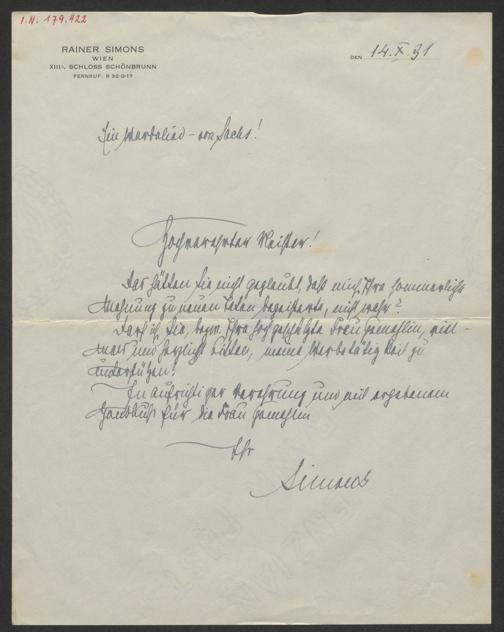 I.N. 179.922
RAINER SIMONS
WIEN
XIII/1, SCHLOSS SCHÖNBRUNN
FERNRUF: R 32-0-17
DEN 14.X.31
Ein Werbelied – von Sachs!
Hochverehrter Meister!
Das hätten Sie nicht geglaubt, daß mich Ihre sommerliche
Mahnung zu neuen Taten begeisterte, nicht wahr?
Darf ich Sie, bezw. Ihre hochgeschätzte Frau Gemahlin, viel-
mals und herzlichst bitten, meine Werbetätigkeit zu
unterstützen!
In aufrichtiger Verehrung und mit ergebenem
Handkuß für die Frau Gemahlin
Ihr
Simons